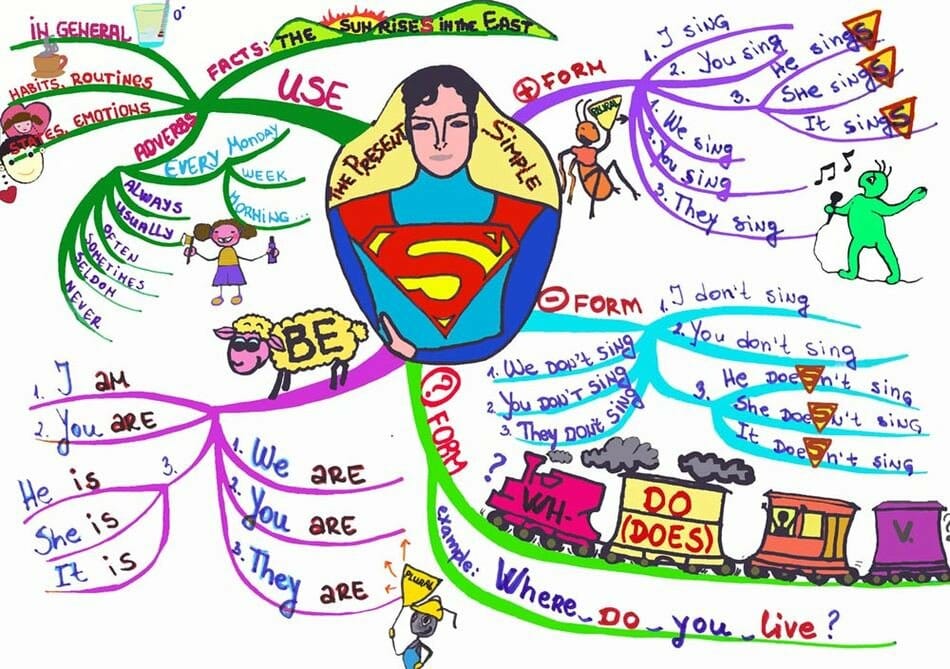 IN GENERAL
HABITS, ROUTINES
STATES, EMOTIONS
FACTS: THE SUN RISES IN THE EAST
USE
ADVERBS
EVERY MONDAY
WEEK
MORNING...
ALWAYS
USUALLY
OFTEN
SOMETIMES
SELDOM
NEVER
THE PRESENT SIMPLE
S
+ FORM
1. I SING
2. You sing
3.
He singS
She singS
It singS
PLURAL
1. We sing
2. You sing
3. They sing
- FORM
1. I don't sing
2. You don't sing
3. He DoeSn't sing
She DoeSN't SING
It DoeSn't SING
1. We DON'T SING
2. You DON'T SING
3. They DON'T SING
BE
1. I AM
2. You ARE
3.
He is
She is
It is
1. We ARE
2. You ARE
3. They ARE
PLURAL
? FORM
?
WH-
DO
(DOES)
V.
example: Where DO you live?